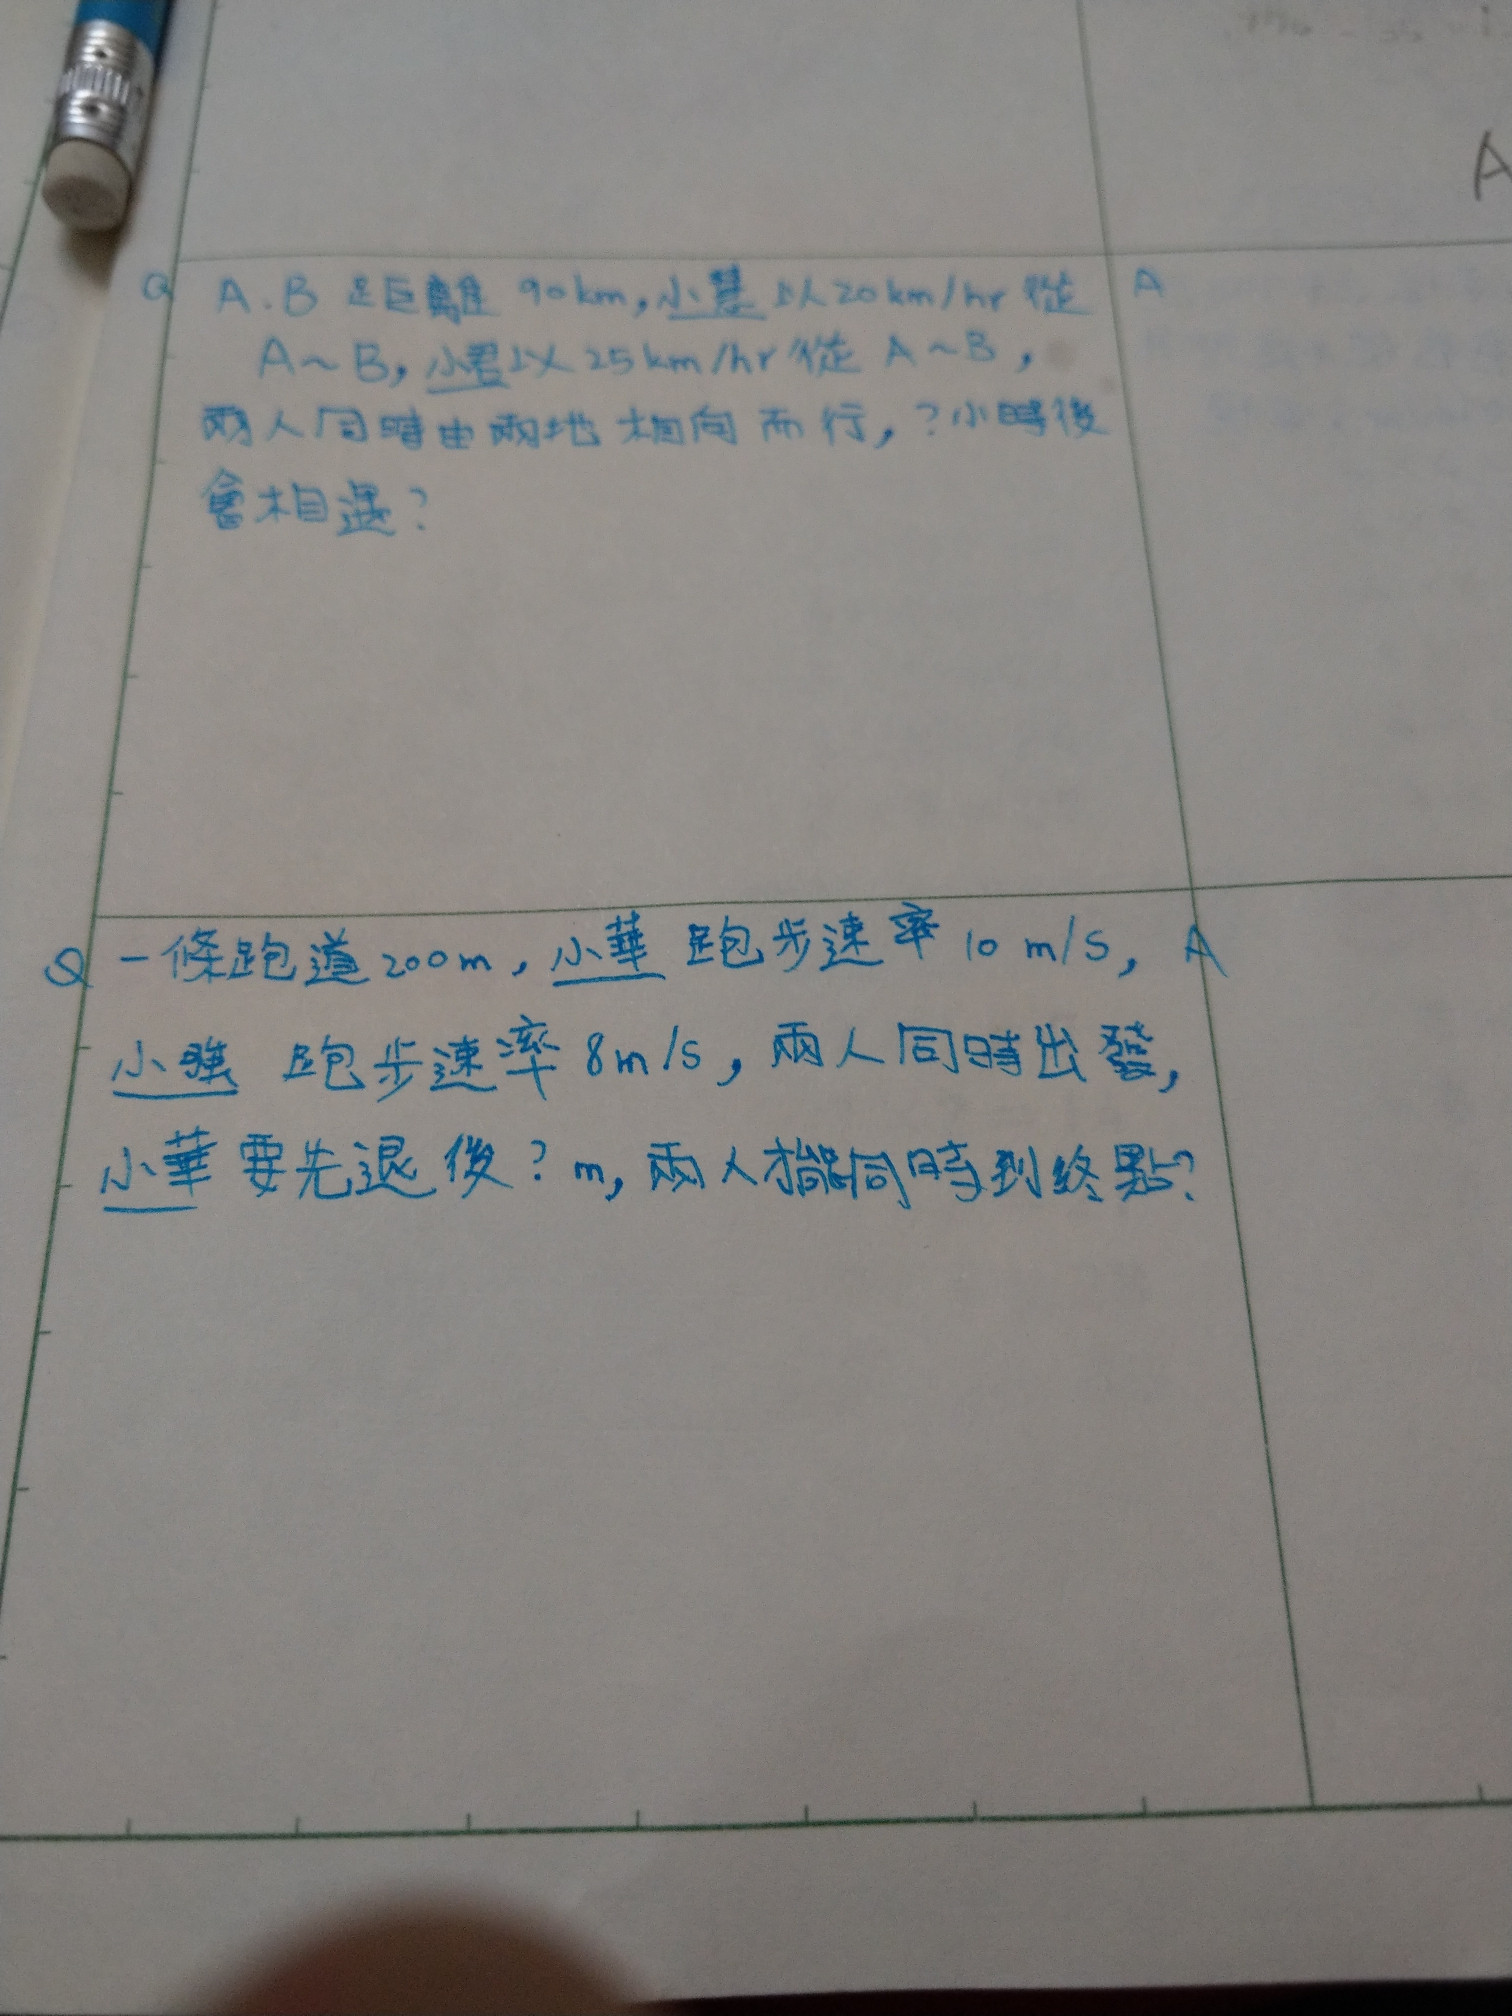 A
Q A.B 距離 90km,小慧以20km/hr 從
A~B,小君以25km/hr從 A~B,
兩人同時由兩地相向而行,?小時後
會相遇?
A
Q 一條跑道200m,小華 跑步速率 10 m/s,
小強 跑步速率 8m/s,兩人同時出發,
小華要先退後? m,兩人才能同時到終點?
A